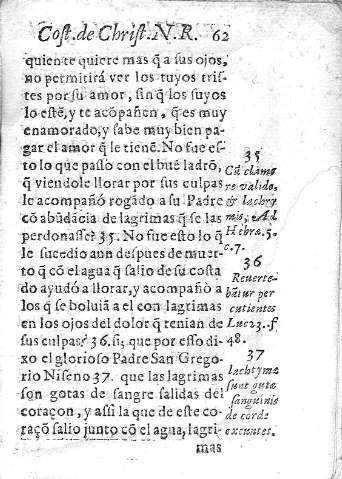 Cost. de Christ. N. R. 62
quien te quiere mas q̃ a sus ojos,
no permitirà ver los tuyos tris-
tes por su amor, sin q̃ los suyos
lo estẽ, y te acõpañen, q̃ es muy
enamorado, y sabe muy bien pa-
gar el amor q̃ le tienẽ. No fue es-
to lo que passo con el buẽ ladrõ,
q̃ viendole llorar por sus culpas
le acompañó rogãdo a su Padre
cõ abũdãcia de lagrimas q̃ se las
perdonasse? 35. No fue esto lo q̃
le sucedio aun despues de muer-
to q̃ cõ el agua q̃ salio de su costa
do ayudó a llorar, y acompañó a
los q̃ se boluiã a el con lagrimas
en los ojos del dolor q̃ tenian de
sus culpas? 36. si; que por esso di-
xo el glorioso Padre San Grego-
rio Niseno 37. que las lagrimas
son gotas de sangre salidas del
coraçon, y assi la que de este co-
raçõ salio junto cõ el agua, lagri-
mas
35
Cũ clamo
re valido,
& lachry
mis, Ad
Hebræ. 5.
c. 7.
36
Reuerte-
bãtur per
cutientes
Luc 23. f
48.
37
lachrymæ
sunt gutæ
sanguinis
de corde
exeuntes.